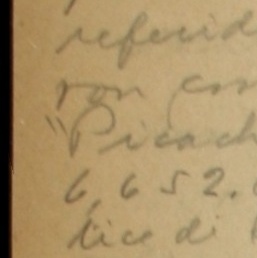 referid
ron com
"Picach
6,652.
lice di